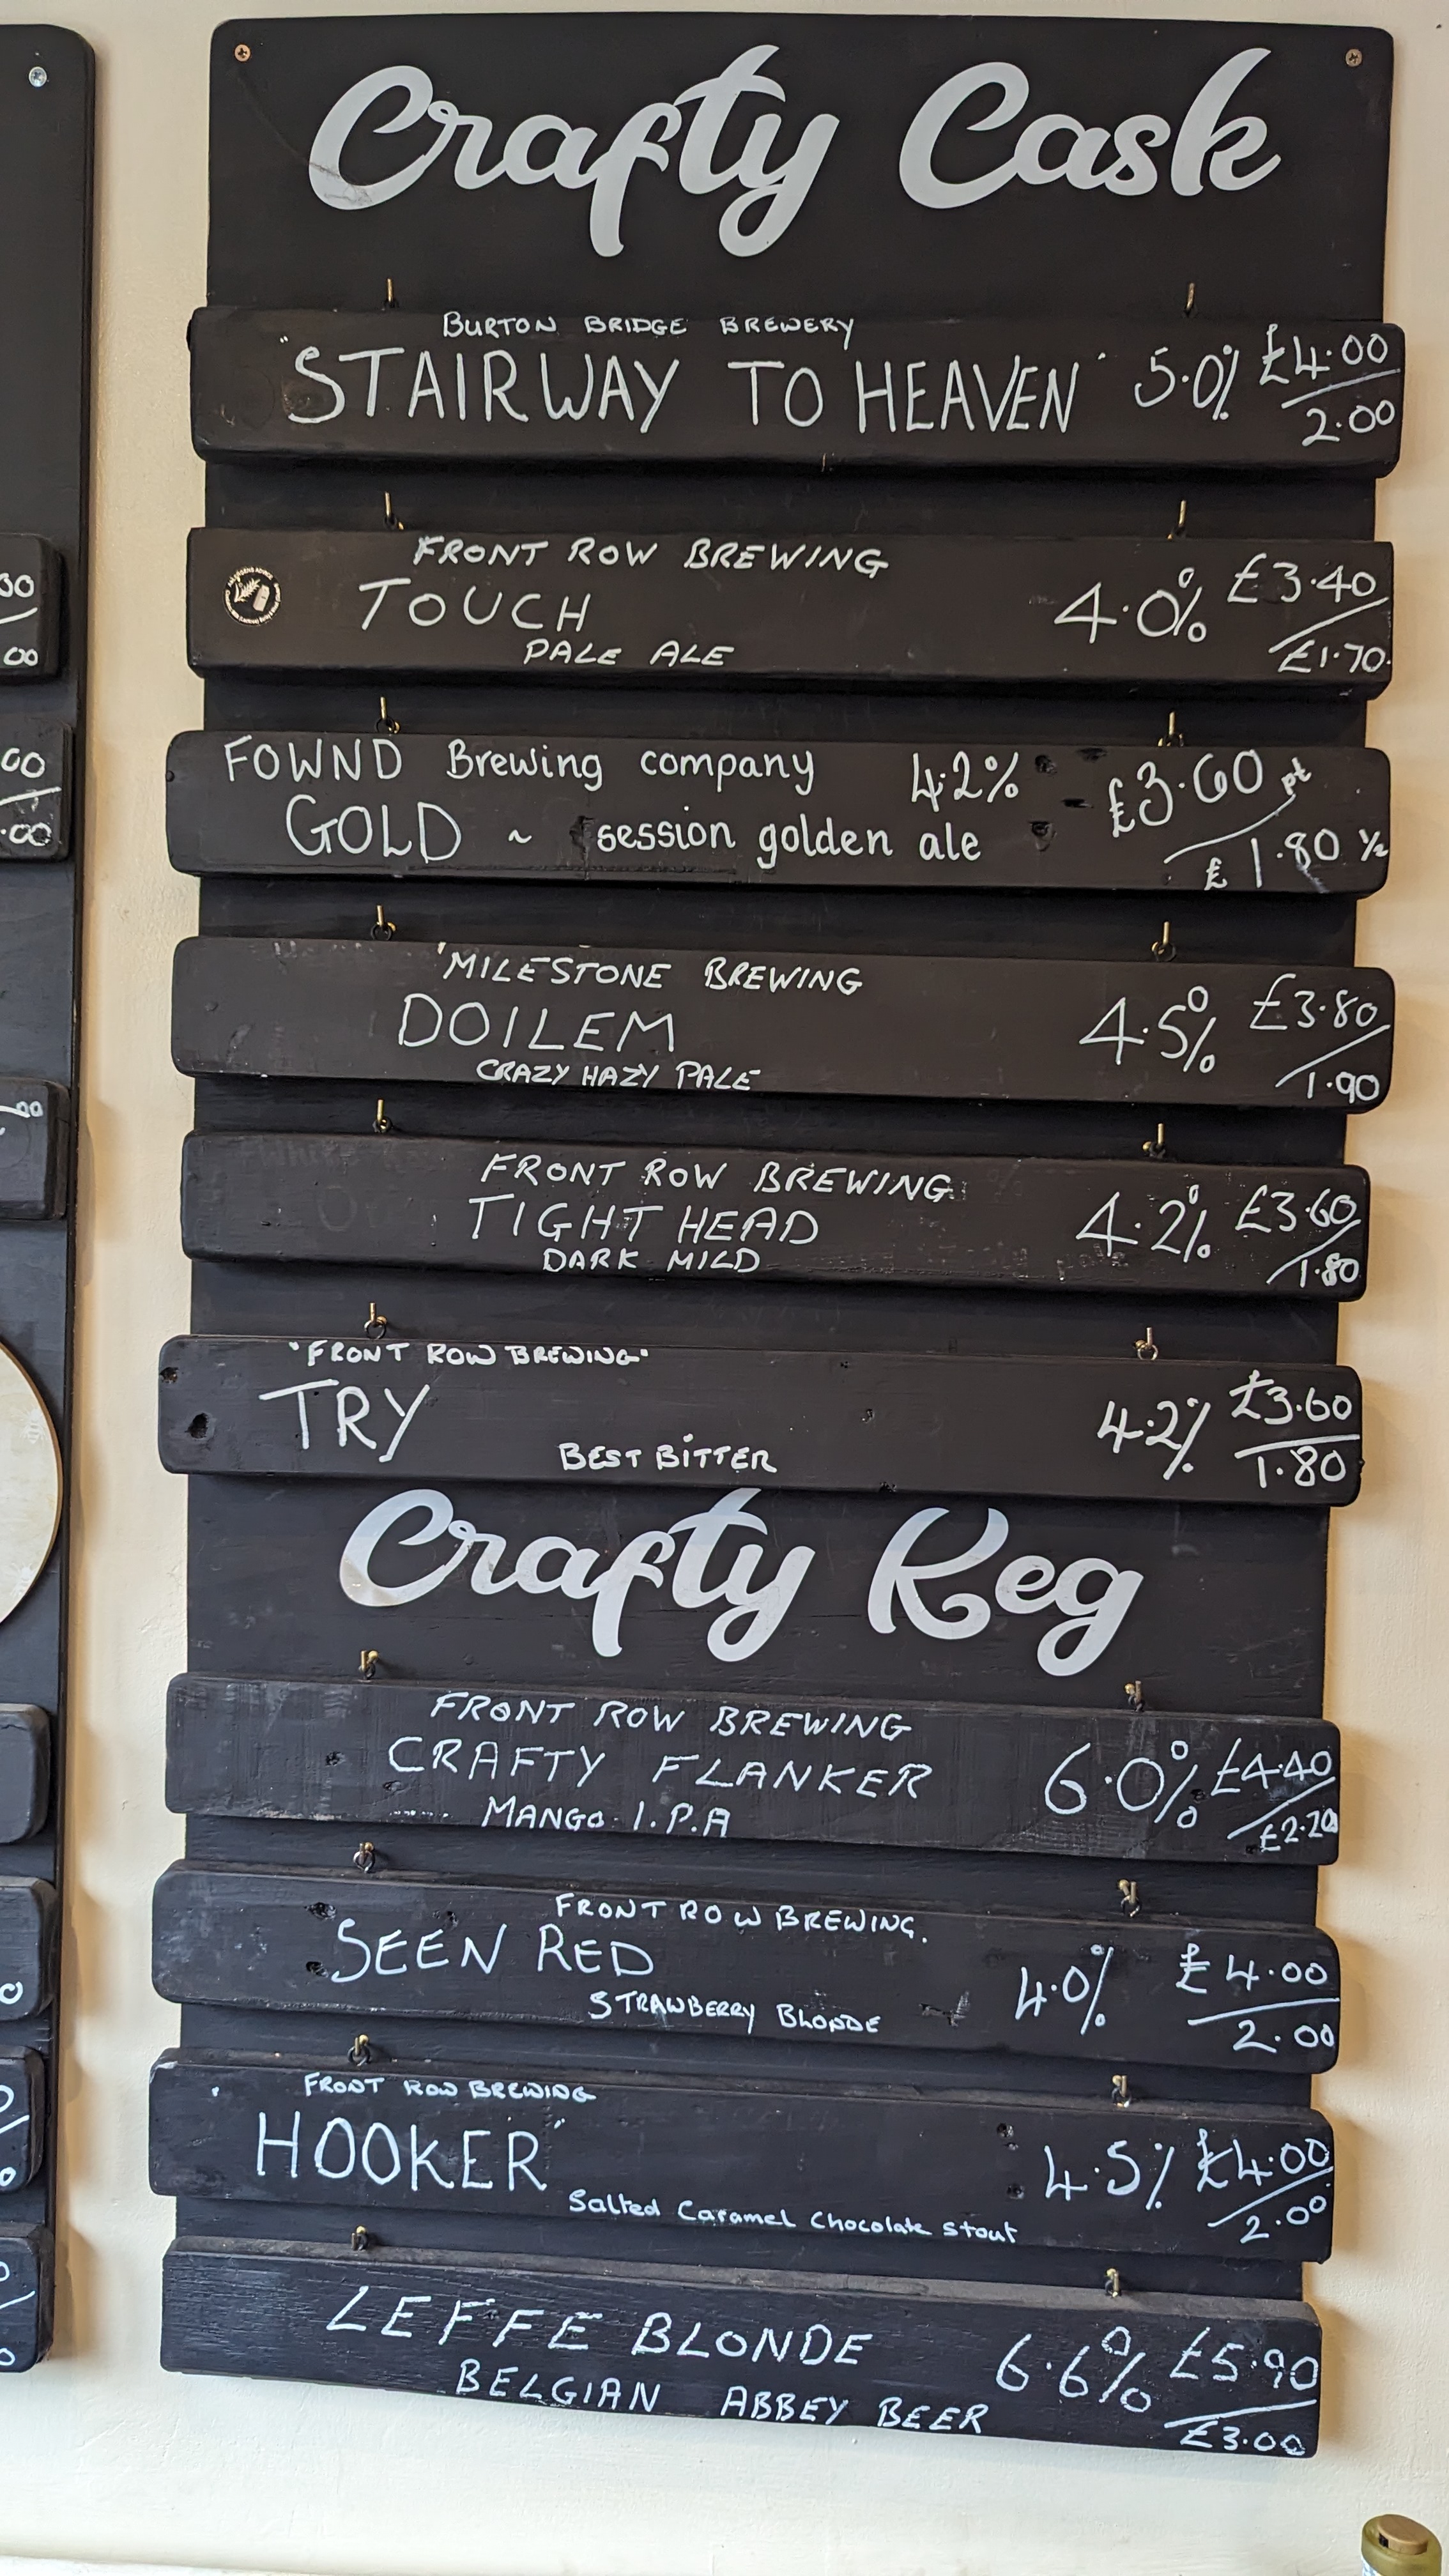 Crafty Cask
BURTON BRIDGE BREWERY
"STAIRWAY TO HEAVEN" 5.0% £4.00
2.00
FRONT ROW BREWING
TOUCH 4.0% £3.40
PALE ALE £1.70
FOWND Brewing company 4.2% - £3.60 pt
GOLD ~ session golden ale £1.80 ½
'MILESTONE BREWING
DOILEM 4.5% £3.80
CRAZY HAZY PALE 1.90
FRONT ROW BREWING
TIGHT HEAD 4.2% £3.60
DARK MILD 1.80
"FRONT ROW BREWING"
TRY 4.2% £3.60
BEST BITTER 1.80
Crafty Keg
FRONT ROW BREWING
CRAFTY FLANKER 6.0% £4.40
MANGO I.P.A £2.20
FRONT ROW BREWING.
SEEN RED 4.0% £4.00
STRAWBERRY BLONDE 2.00
FRONT ROW BREWING
HOOKER" 4.5% £4.00
Salted Caramel Chocolate stout 2.00
LEFFE BLONDE 6.6% £5.90
BELGIAN ABBEY BEER £3.00